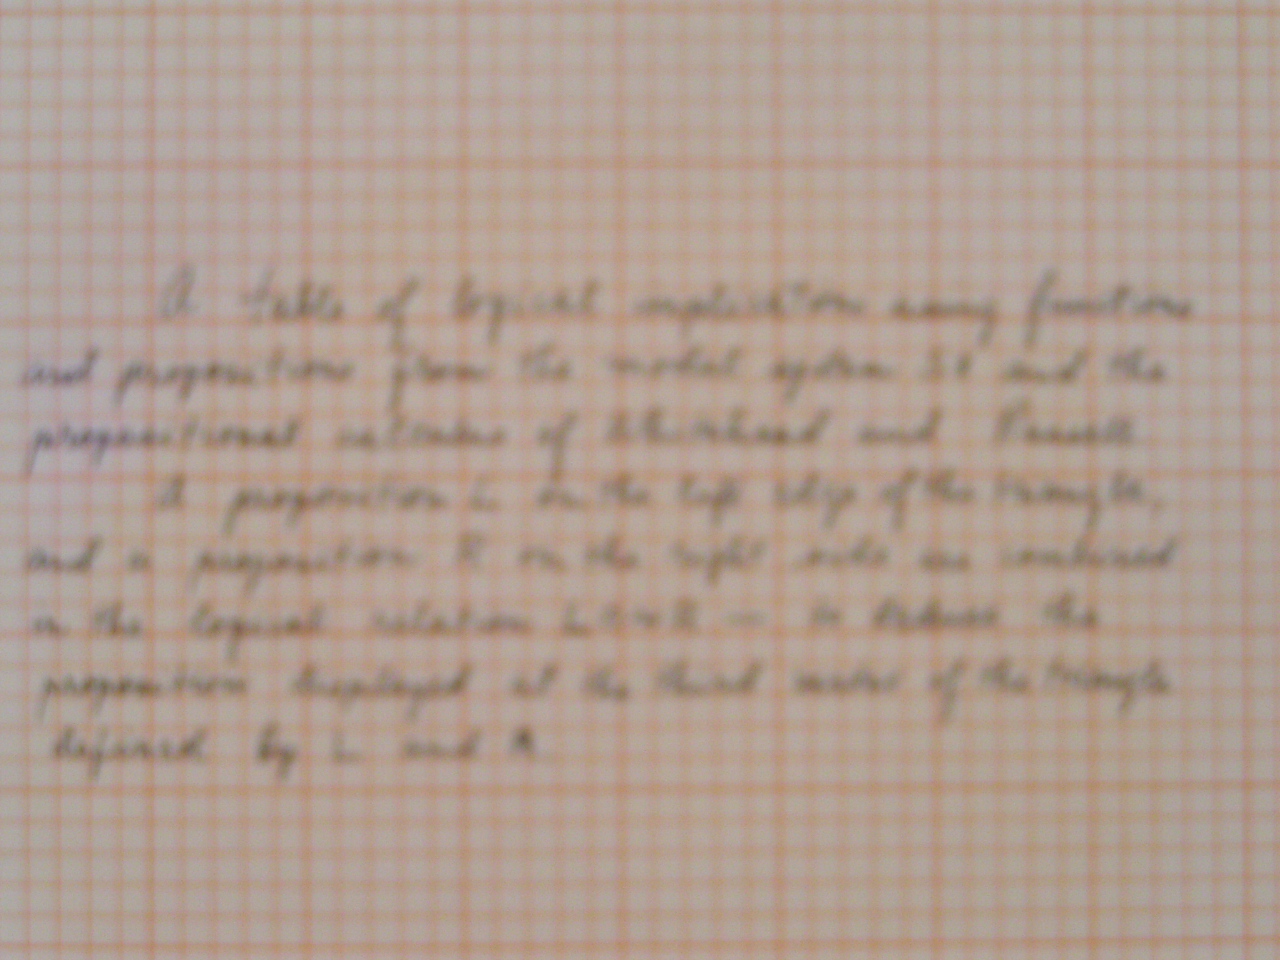 A table of logical implication among functions
and propositions from the modal system and the
propositional calculus of Whitehead and Russell
A proposition L on the left edge of the triangle,
and a proposition R on the right side are combined
in the logical relation to deduce the
proposition displayed at the third vertex of the triangle
defined by L and R